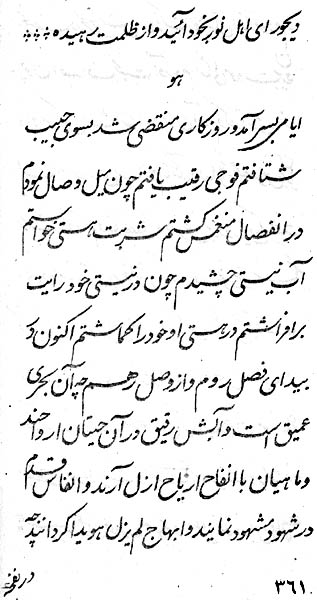 دیجور ای اهل نور بخود آئید و از ظلمت رهیده
هو
ایامی بسر آمد و روزکاری منقضی شد بسوی حبیب
شتافتم فوجی رقیب یافتم چون میل وصال نمودم
در انفصال منغمس کشتم شربت هستی خواستم
آب نیستی چشیدم چون در نیستی خود رایت
برافراشتم در هستی او خود را کماشتم اکنون در
بیدای فصل روم و از وصل رهم چه آن بحری
عمیق است و آبش رقیق در آن حیتان ارواحند
و ماهیان با انفاح اریاح ازل آرند و انفاس قدم
در شهود مشهود نمایند و ابهاج لم یزل هویدا کردانند چه
در بقر
۳۶۱